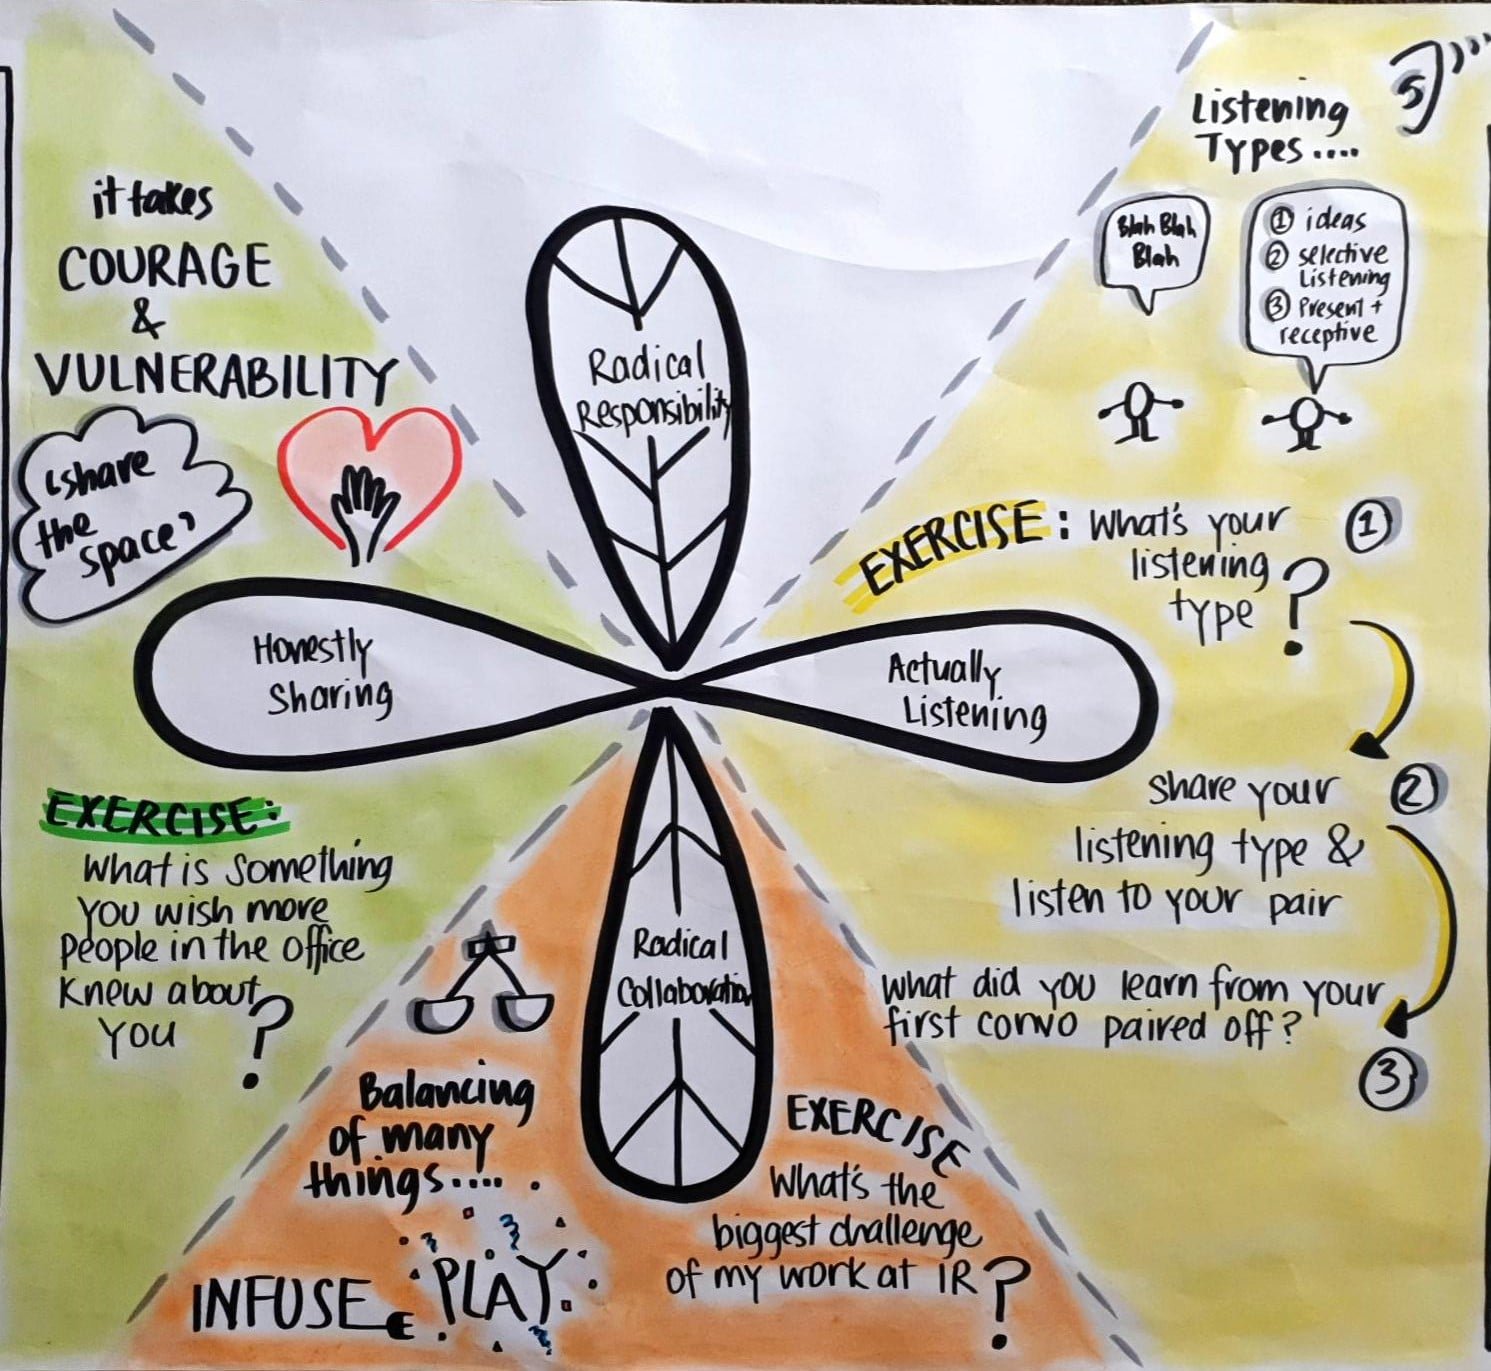 it takes
COURAGE
&
VULNERABILITY
"share
the
space"
Radical
Responsibility
Honestly
Sharing
Actually
Listening
Radical
Collaboration
Listening
Types....
Blah Blah
Blah
① ideas
② selective
Listening
③ Present +
receptive
EXERCISE: What's your
listening
type ?
①
share your
listening type &
listen to your pair
②
what did you learn from your
first convo paired off?
③
EXERCISE:
What is something
you wish more
people in the office
knew about
you ?
Balancing
of many
things....
INFUSE PLAY
EXERCISE
What's the
biggest challenge
of my work at IR ?